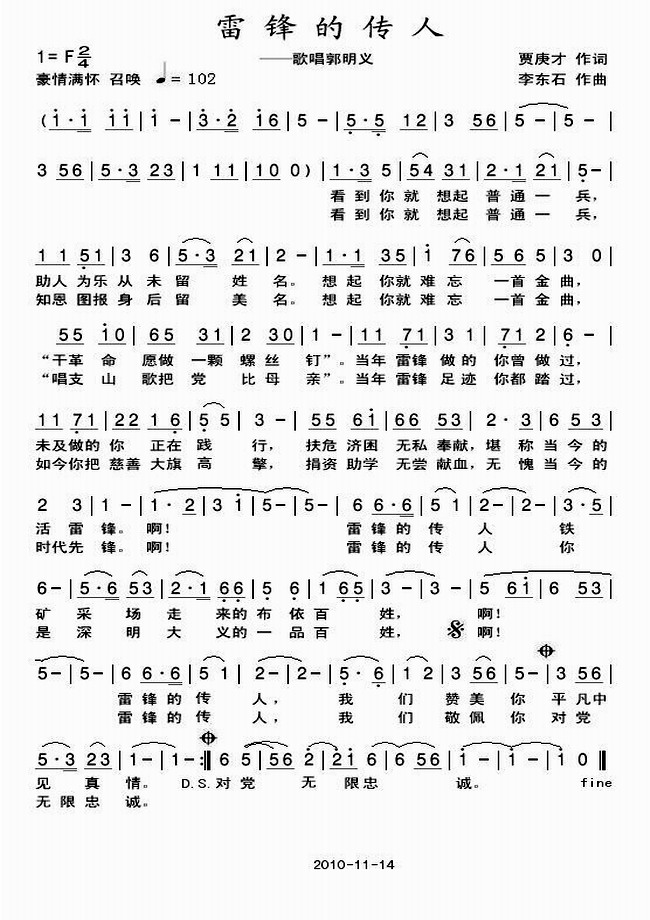 雷锋的传人
1=F 2/4
——歌唱郭明义
贾庚才 作词
豪情满怀 召唤 ♩=102
李东石 作曲
(i·i ii|i -|3·2 i6|5 -|5·5 12|3 56|5 -|5 -|
3 56|5·3 23|1 11|10 0)|1·3 5|54 31|2·1 21|5 -|
看到你就 想起 普通一 兵,
看到你就 想起 普通一 兵,
1 1 51|3 6|5·3 21|2 -|1·1 35|i 76|5 6 5|3 0|
助人 为乐 从 未 留 姓 名。 想起 你就难 忘 一首 金 曲,
知恩 图报 身 后 留 美 名。 想起 你就难 忘 一首 金 曲,
55 i0|65 31|2 30|1 -|11 71|3 1|71 2|6 -|
“干革 命 愿做 一颗 螺 丝 钉”。当年 雷锋 做 的 你曾 做 过,
“唱支 山 歌把 党 比 母 亲”。当年 雷锋 足 迹 你都 踏 过,
11 71|22 1 6|5 5|3 -|55 6i|66 53|2·3|6 53|
未及 做的 你 正在 践 行, 扶危 济困 无私 奉献,堪 称 当 今的
如今 你把 慈善 大旗 高 擎, 捐资 助学 无尝 献血,无 愧 当 今的
2 3|1 -|1·2|3 i|5 -|5 -|6 6·6|5 1|2 -|3·5|
活 雷 锋。 啊! 雷 锋 的 传 人 铁
时代 先 锋。 啊! 雷 锋 的 传 人 你
6 -|5·6 53|2·1|6 6 5|5 2|1 65|3 -|3 -|5 6i|6 53|
矿 采 场 走 来的 布 依 百 姓, 啊!
是 深 明 大 义的 一 品 百 姓, 啊!
5 -|5 -|6 6·6|5 1|2 -|5·5|6 1|1 2|3 56|5 2|3 55|
雷 锋 的 传 人, 我 们 赞 美 你 平 凡中
雷 锋 的 传 人, 我 们 敬 佩 你 对 党
5·3 23|1 -|1 -:‖6 5|56 2|2i 6|56 5|i -|i -|i 0‖
见 真 情。 D.S.对 党 无 限 忠 诚。 fine
无 限 忠 诚。
2010-11-14